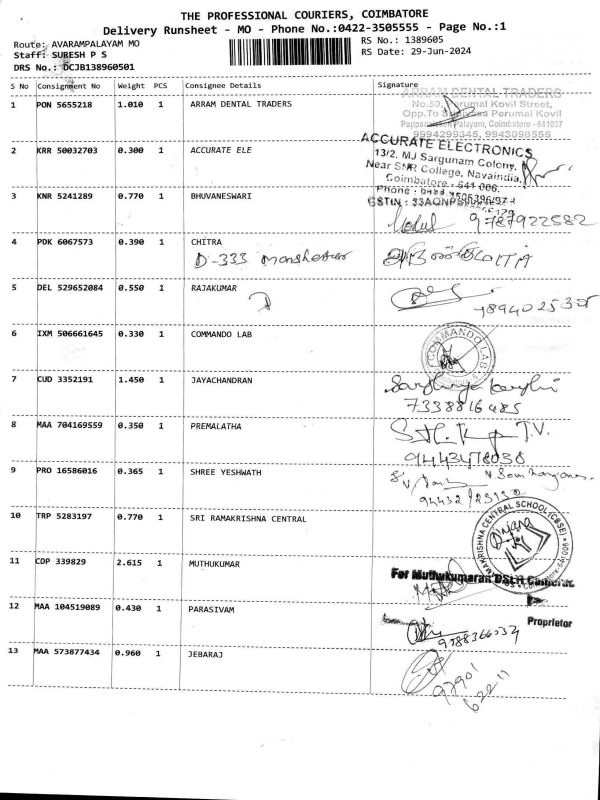 THE PROFESSIONAL COURIERS, COIMBATORE
Delivery Runsheet - MO - Phone No.:0422-3505555 - Page No.:1
Route: AVARAMPALAYAM MO
RS No.: 1389605
Staff: SURESH P S
RS Date: 29-Jun-2024
DRS No.: DCJB138960501
S No Consignment No Weight PCS Consignee Details Signature
1 PON 5655218 1.010 1 ARRAM DENTAL TRADERS
ARRAM DENTAL TRADERS
Perumal Kovil Street,
Opp.To Perumal Kovil
Palayam, Coimbatore - 641037
9994299345, 9943098555
2 KRR 50032703 0.300 1 ACCURATE ELE
ACCURATE ELECTRONICS
13/2, MJ Sargunam Colony,
Near SNR College, Navaindia,
Coimbatore - 641 006.
Phone :
GSTIN :
3 KNR 5241289 0.770 1 BHUVANESWARI
9787922582
4 PDK 6067573 0.390 1 CHITRA
D-333
5 DEL 529652084 0.550 1 RAJAKUMAR
6 IXM 506661645 0.330 1 COMMANDO LAB
COMMANDO LAB
7 CUD 3352191 1.450 1 JAYACHANDRAN
7338816485
8 MAA 704169559 0.350 1 PREMALATHA
T.V.
9 PRO 16586016 0.365 1 SHREE YESHWATH
10 TRP 5283197 0.770 1 SRI RAMAKRISHNA CENTRAL
CENTRAL SCHOOL (CBSE)
11 CDP 339829 2.615 1 MUTHUKUMAR
For Muthukumaran DSLR Cameras
Proprietor
12 MAA 104519089 0.430 1 PARASIVAM
13 MAA 573877434 0.960 1 JEBARAJ